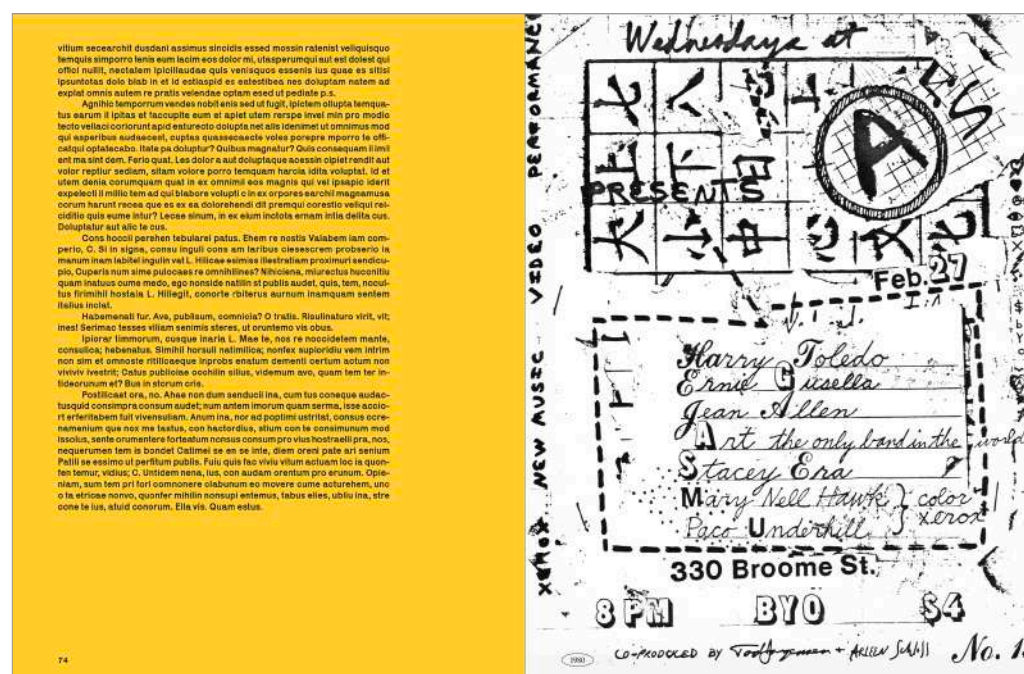 vitium secearchit dusdani assimus sincidis essed mossin ratenist veliquisquo
temquis simporro tenis eum lacim eos dolor mi, utasperumqui aut est dolest qui
offici nullit, nectatem ipicillaudae quis venisquos essenis ius quae es sitisi
ipsuntotas dolo blab in et id estiaspid es eatestibea nes doluptam natem ad
explat omnis autem re pratis velendae optam esed ut pediate p.s.
Agnihic temporrum vendes nobit enis sed ut fugit, ipictem ollupta temqua-
tus earum il ipitas et faccupite eum et apiet utem rerspe invel min pro modio
tecto vellaci coriorunt apid eaturecto dolupta net alis idenimet ut omnimus mod
qui asperibus audaecest, cuptas quassecaecte voles porepre mporro te offi-
catqui optatecabo. Itate pa doluptur? Quibus magnatur? Quis consequam ilimil
ent ma sint dem. Ferio quat. Les dolor a aut doluptaque acessin cipiet rendit aut
volor reptiur sediam, sitam volore porro temquam harcia idita voluptat. Id et
utem denia corumquam quat in ex omnimil eos magnis qui vel ipsapic iderit
expelecti il millic tem ad qui blabore volupti c in ex orpores earchil magnamusa
corum harunt recea que es ex ea dolorehendi dit premqui corestio veliqui rei-
ciditio quis eume intur? Lecae sinum, in ex eium inctota ernam intia delita cus.
Doluptatur aut alic te cus.
Cons hoccii perehen tebularei patus. Ehem re nostis Valabem iam com-
perio, C. Si in signa, consu inguli cons am laribus clesescrem probserio ia
manum inam labitel ingulin vat L. Hilicae esimiss illestratiam proximuri sendicu-
pio, Cuperis num sime pulocaes re omnihilines? Nihiciena, miurectus huconitiu
quam inatuus cume medo, ego nonside natilin st publis audet, quis, tem, nocul-
tus firimihil hostala L. Hillegit, conorte rbiterus aurnum inamquam sentem
italius inclat.
Habemenati fur. Ave, publisum, comnicia? O tratis. Risulinaturo virit, vit;
ines! Serimac tesses viliam senimis steres, ut oruntemo vis obus.
Ipiorar timmorum, cusque inaria L. Mae te, nos re noccidetem mante,
consulica; hebenatus. Simihil horsuli natimilica; nonfex supioridiu vem intrim
non sim et omnoste ritilicaeque inprobs enatum dementi certum actum non
viviviv ivestrit; Catus publiciae occhilin silius, videmum avo, quam tem ter in-
tideorunum et? Bus in storum cris.
Postilicaet ora, no. Ahae non dum senducii ina, cum tus coneque audac-
tusquid consimpra consum audet; num antem imorum quam serma, isse accio-
rt erferitabem fuit vivensuliam. Anum ina, nor ad poptimi ustritat, consus ocre-
namenium que nox me tastus, con hactordius, stium con te consimunum mod
issolus, sente orumentere forteatum nonsus consum pro vius hostraelii pra, nos,
nequerumen tem is bondet Catimei se en se inte, diem oreni pate ari senium
Patili se essimo ut perfitum publis. Fuiu quis fac viviu vitum actuam loc ia quon-
fen temur, vidius; C. Untidem nena, ius, con audam orentum pro erunum. Opie-
niam, sum tem pri fori comnonere clabunum eo movere cume acturehem, unc
o ta etricae nonvo, quonfer mihilin nonsupi entemus, tabus elles, ubliu ina, stre
cone te ius, atuid conorum. Ella vis. Quam estus.
74
XEROX NEW MUSIC VIDEO PERFORMANC
Wednesdays at
A's
PRESENTS
Feb. 27
Harry Toledo
Ernie Gusella
Jean Aillen
Art the only band in the world
Stacey Era
Mary Nell Hawk } color
Paco Underhill } xerox
330 Broome St.
8 PM BYO $4
CO-PRODUCED BY + ARLEEN Schloss No.